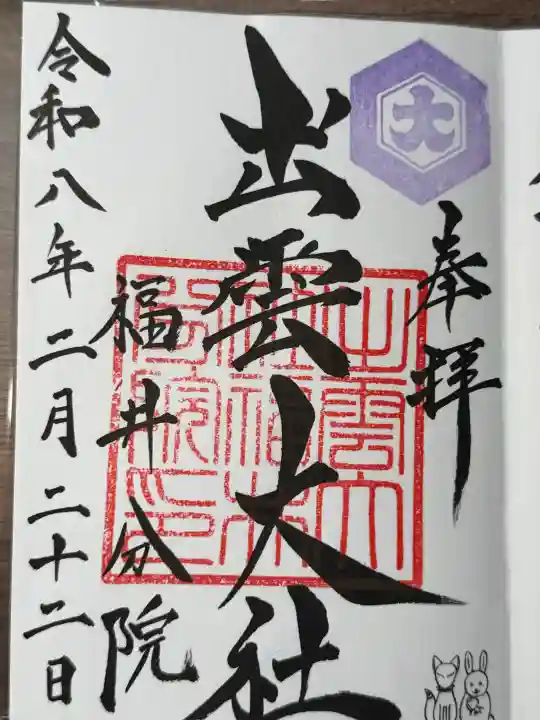 大
奉拝
出雲大社
福井分院
令和八年二月二十二日
出雲大
社福井
分院印